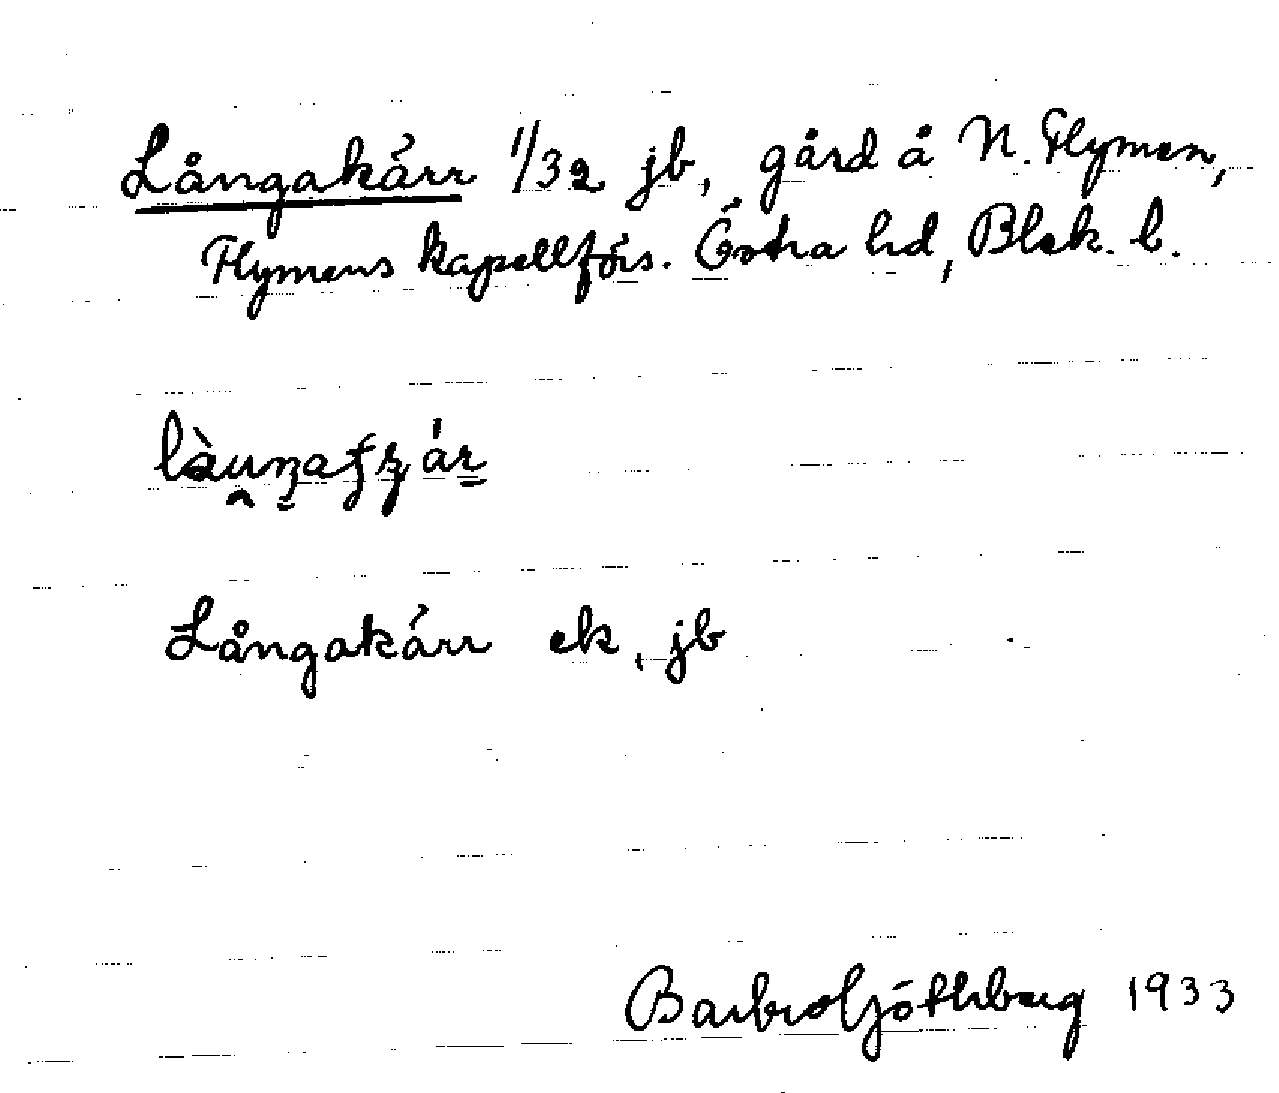 Långakärr 1/32 jb, gård å N. Flymen,
Flymens kapellförs. Östra hd, Blek. l.
Långakärr ek, jb
Barbro Göthberg 1933